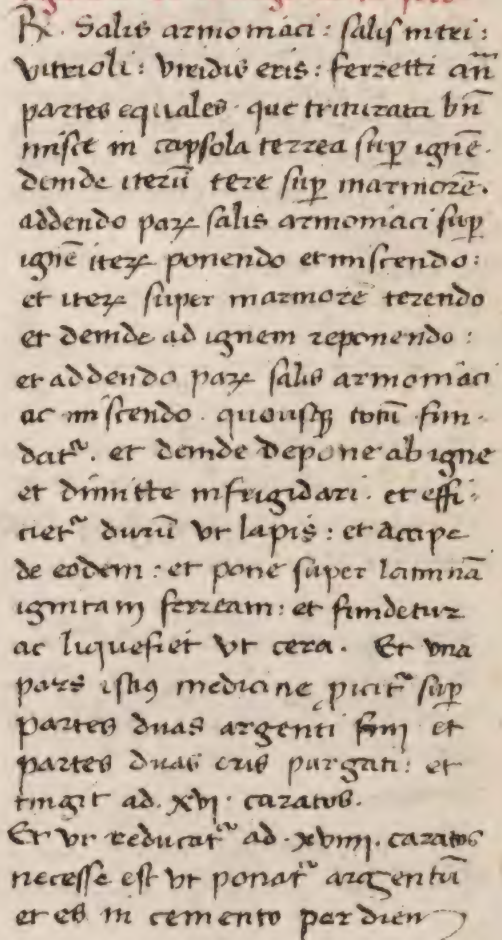 ℞. Salis armoniaci : salis nitri :
vitrioli : viridis eris : ferretti an̄
partes equales. que triturata bn̄
misce in capsola terrea suꝑ ignē.
deinde iterū tere suꝑ marmorē.
addendo parꝝ salis armoniaci suꝑ
ignē iterꝝ ponendo et miscendo :
et iterꝝ super marmorē terendo
et deinde ad ignem reponendo :
et addendo parꝝ salis armoniaci
ac miscendo. quousqꝫ totū fun-
datᷣ. et deinde depone ab igne
et dimitte infrigidari. et effi-
cietᷣ durū vt lapis : et accipe
de eodem : et pone super laminā
ignitam ferream : et fundetur
ac liquefiet vt cera. Et vna
pars istiꝰ medicine ꝓicitᷣ suꝑ
partes duas argenti fini et
partes duas eris purgati : et
tingit ad .xvj. caratos.
Et vt reducatᷣ ad .xviiij. caratos
necesse est vt ponatᷣ argentū
et es in cemento per diem